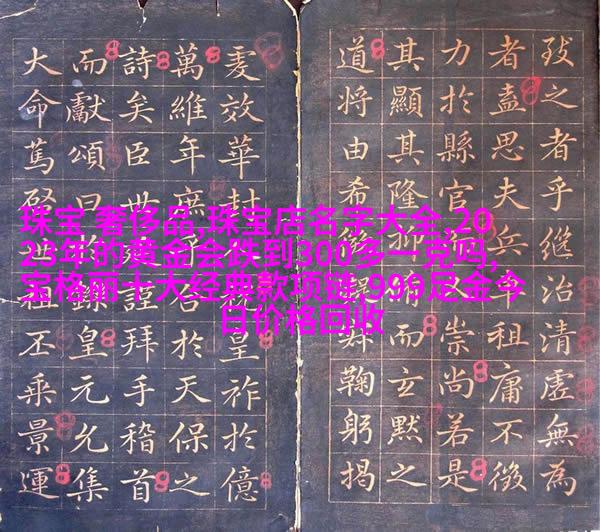 珠宝 奢侈品,珠宝店名字大全,20
23年的黄金会跌到300多一克吗,
宝格丽十大经典款项链,999足金今
日价格回收
致之者乎継治清虛無為
者盍思夫兵租庸不徵
力於縣官崇尚若是
其顯其隆抑而玄默之
道將由希鞠躬揭
夏效華封皇祚於億
萬維年庶於天保之
詩矣臣世謹拜手稽首
而獻頌曰皇元允集
大命篤祖丕乘景運